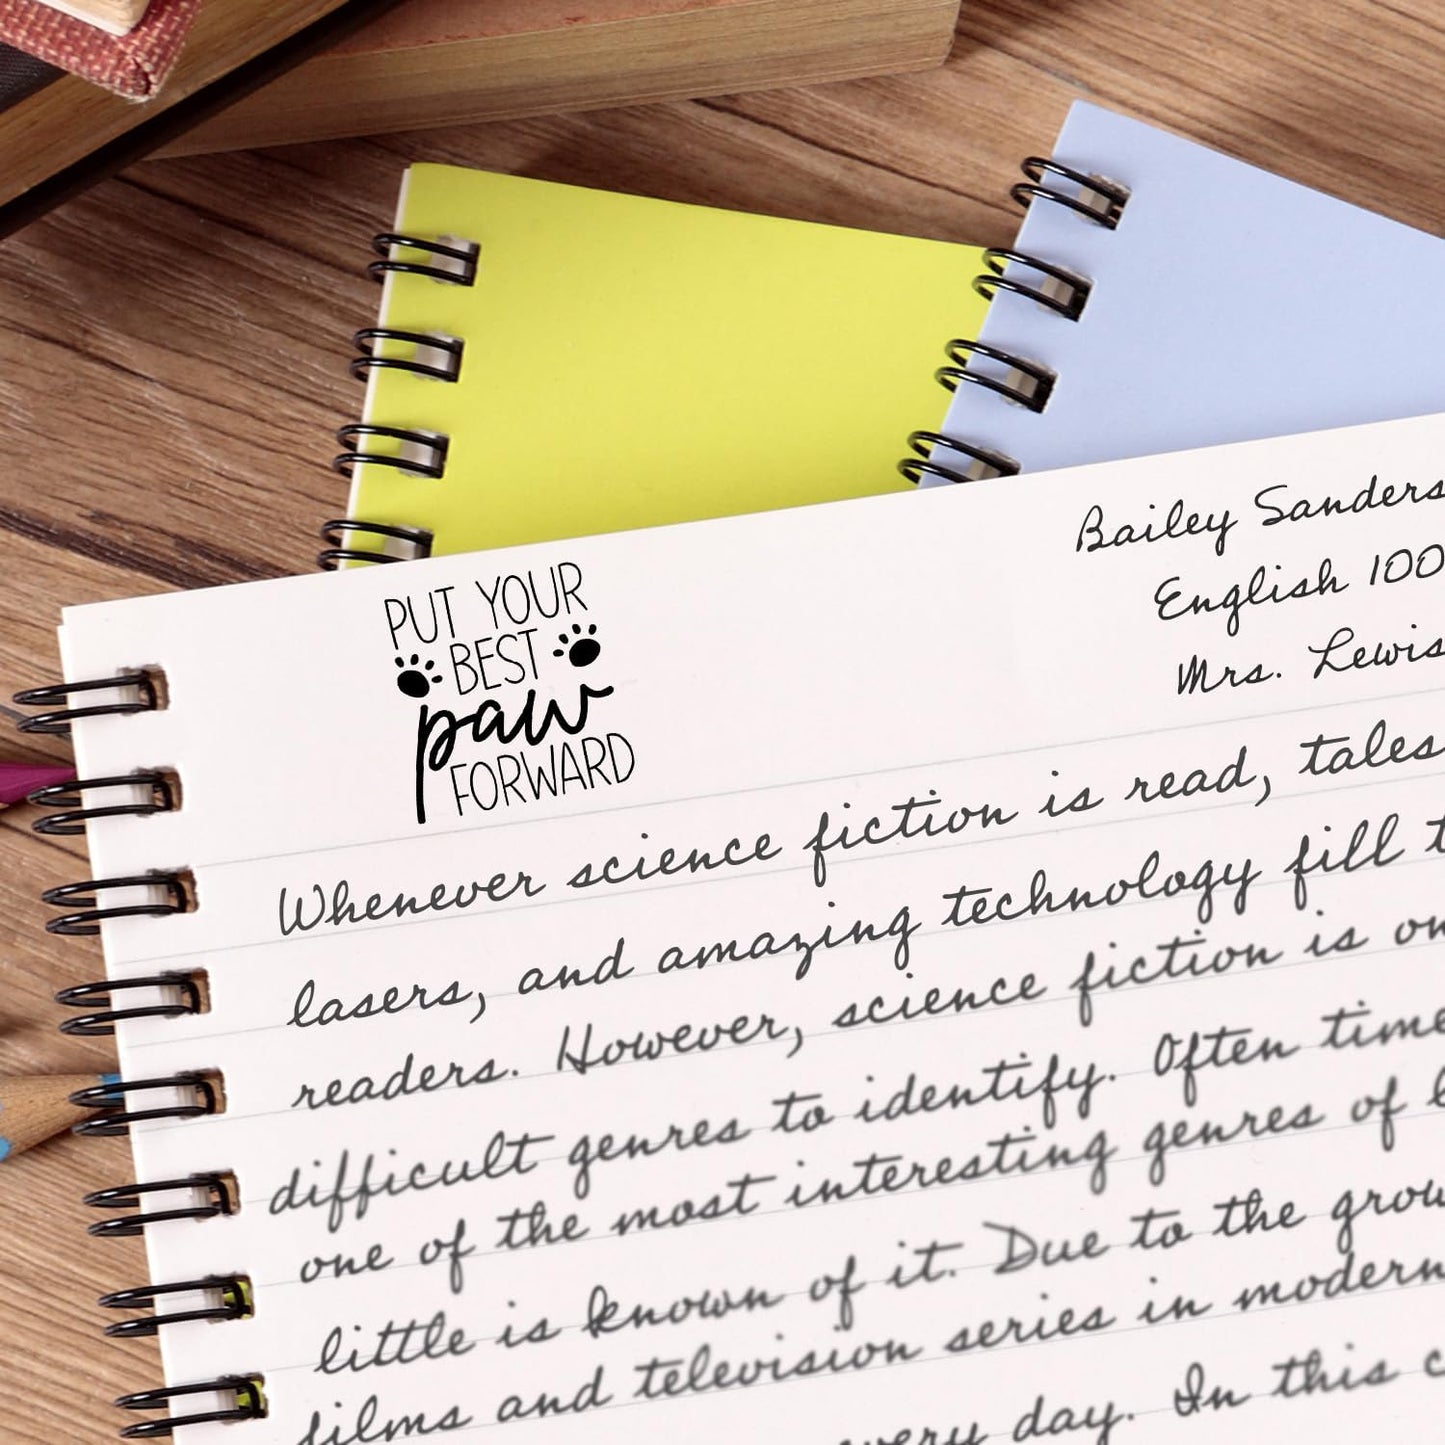 PUT YOUR
BEST
paw
FORWARD
Bailey Sanders
English 100
Mrs. Lewis
Whenever science fiction is read, tales
lasers, and amazing technology fill
readers. However, science fiction is
difficult genres to identify. Often
one of the most interesting genres of
little is known of it. Due to the
films and television series in modern
every day. In this